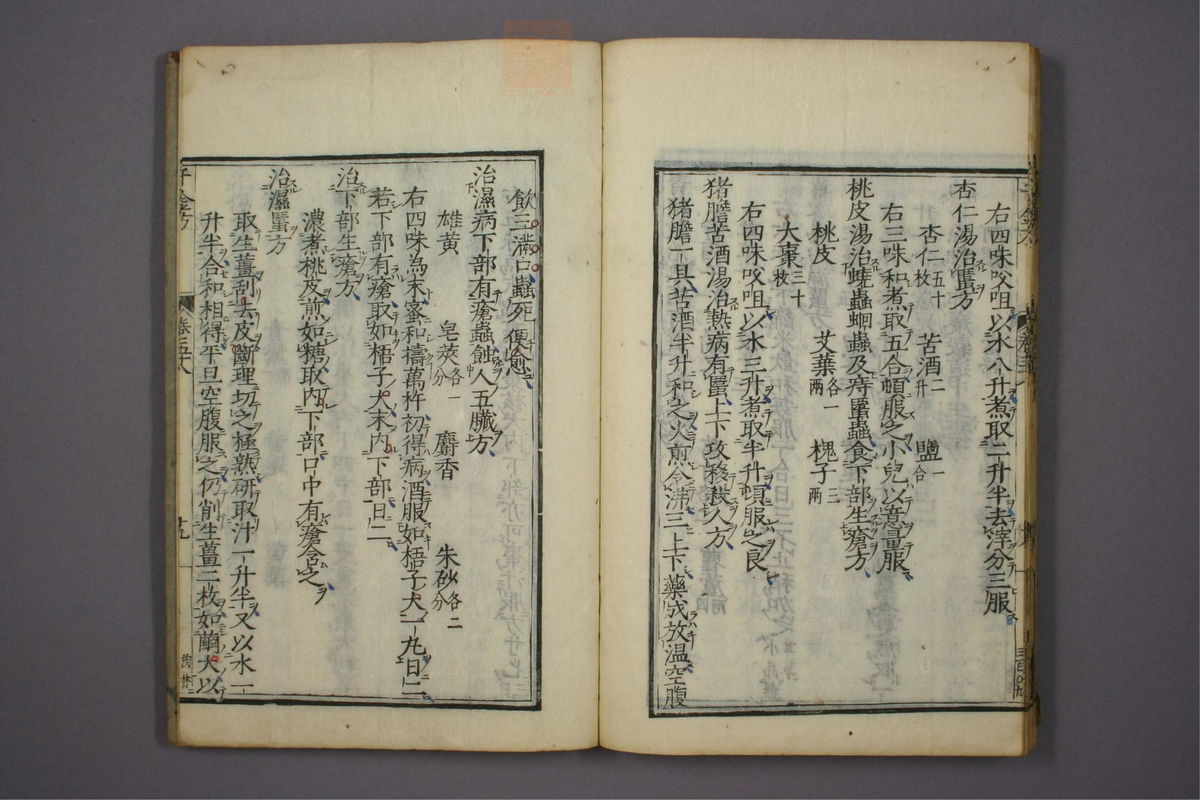 右四味㕮咀以水八升煮取二升半去滓分三服
杏仁湯治䘌方
杏仁五十枚 苦酒二升 鹽一合
右三味和煮取五合頓服之小兒以意量服
桃皮湯治蟯蟲蛔蟲及痔䘌蟲食下部生瘡方
桃皮 艾葉各一兩 槐子三兩
大棗三十枚
右四味㕮咀以水三升煮取半升頓服之良
猪膽苦酒湯治熱病有䘌上下攻移殺人方
猪膽一具苦酒半升和之火煎令沸三上下藥成放温空腹
飲三滿口蟲死便愈
治濕病下部有瘡蟲蝕人五臟方
雄黃 皂莢各一分 麝香 朱砂各二分
右四味為末蜜和擣萬杵初得病酒服如梧子大一丸日二
若下部有瘡取如梧子大末内下部日二
治下部生瘡方
濃煮桃皮煎如糖取内下部口中有瘡含之
治濕䘌方
取生薑刮去皮斷理切之極熟研取汁一升半又以水一
升半合和相得平旦空腹服之仍削生薑二枚如繭大以
千金方 卷五八 廿九